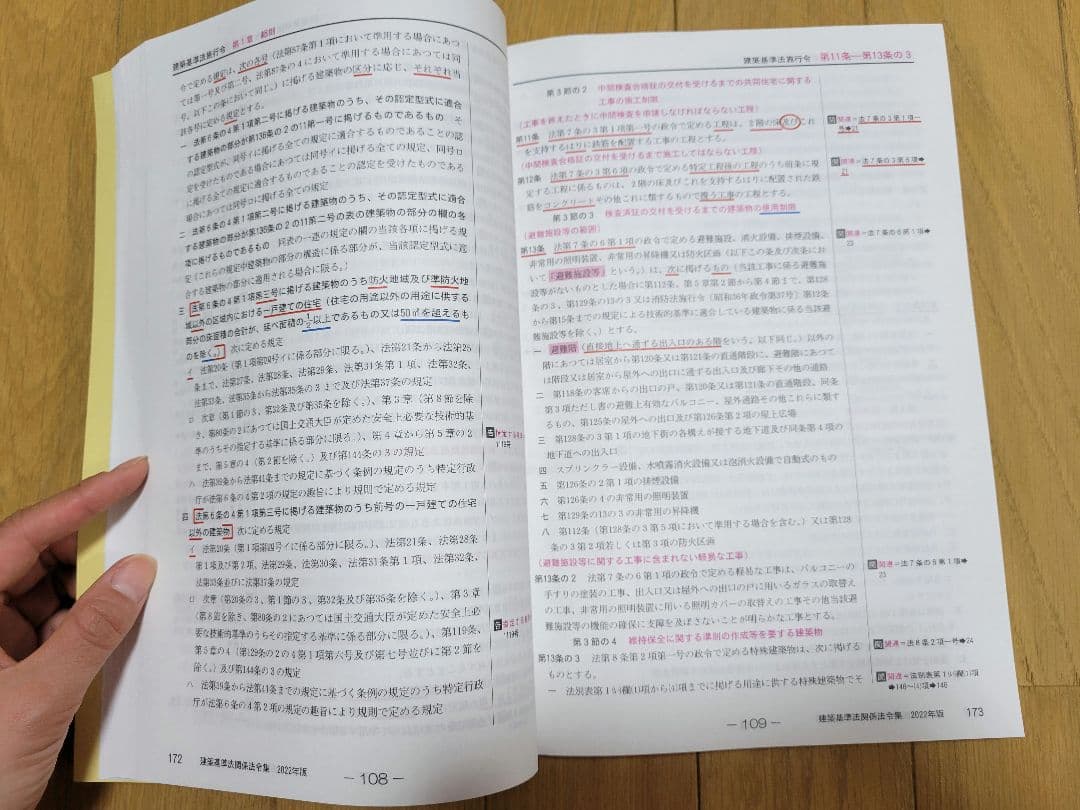 建築基準法施行令 第1章 総則
令で定める規定は、次の各号(法第87条第1項において準用する場合にあつ
ては第一号及び第二号、法第87条の4において準用する場合にあつては同
号。以下この条において同じ。)に掲げる建築物の区分に応じ、それぞれ当
該各号に定める規定とする。
一 法第6条の4第1項第二号に掲げる建築物のうち、その認定型式に適合
する建築物の部分が第136条の2の11第一号に掲げるものであるもの そ
の認定型式が、同号イに掲げる全ての規定に適合するものであることの認
定を受けたものである場合にあつては同号イに掲げる全ての規定、同号ロ
に掲げる全ての規定に適合するものであることの認定を受けたものである
場合にあつては同号ロに掲げる全ての規定
二 法第6条の4第1項第二号に掲げる建築物のうち、その認定型式に適合
する建築物の部分が第136条の2の11第二号の表の建築物の部分の欄の各
項に掲げるものであるもの 同表の一連の規定の欄の当該各項に掲げる規
定(これらの規定中建築物の部分の構造に係る部分が、当該認定型式に適
合する建築物の部分に適用される場合に限る。)
三 法第6条の4第1項第三号に掲げる建築物のうち防火地域及び準防火地
域以外の区域内における一戸建ての住宅(住宅の用途以外の用途に供する
部分の床面積の合計が、延べ面積の1/2以上であるもの又は50㎡を超えるも
のを除く。) 次に定める規定
イ 法第20条(第1項第四号イに係る部分に限る。)、法第21条から法第25
条まで、法第27条、法第28条、法第29条、法第31条第1項、法第32条、
法第33条、法第35条から法第35条の3まで及び法第37条の規定
ロ 次章(第1節の3、第32条及び第35条を除く。)、第3章(第8節を除
き、第80条の2にあつては国土交通大臣が定めた安全上必要な技術的基
準のうちその指定する基準に係る部分に限る。)、第4章から第5章の2
まで、第5章の4(第2節を除く。)及び第144条の3の規定
ハ 法第39条から法第41条までの規定に基づく条例の規定のうち特定行政
庁が法第6条の4第2項の規定の趣旨により規則で定める規定
四 法第6条の4第1項第三号に掲げる建築物のうち前号の一戸建ての住宅
以外の建築物 次に定める規定
イ 法第20条(第1項第四号イに係る部分に限る。)、法第21条、法第28条
第1項及び第2項、法第29条、法第30条、法第31条第1項、法第32条、
法第33条並びに法第37条の規定
ロ 次章(第20条の3、第1節の3、第32条及び第35条を除く。)、第3章
(第8節を除き、第80条の2にあつては国土交通大臣が定めた安全上必
要な技術的基準のうちその指定する基準に係る部分に限る。)、第119条、
第5章の4(第129条の2の4第1項第六号及び第七号並びに第2節を
除く。)及び第144条の3の規定
ハ 法第39条から法第41条までの規定に基づく条例の規定のうち特定行政
庁が法第6条の4第2項の規定の趣旨により規則で定める規定
172 建築基準法関係法令集 2022年版
—108—
建築基準法施行令 第11条―第13条の3
第3節の2 中間検査合格証の交付を受けるまでの共同住宅に関する
工事の施工制限
(工事を終えたときに中間検査を申請しなければならない工程)
第11条 法第7条の3第1項第一号の政令で定める工程は、2階の床及びこれ
を支持するはりに鉄筋を配置する工事の工程とする。
関連=法7条の3第1項一
号➡21
(中間検査合格証の交付を受けるまで施工してはならない工程)
第12条 法第7条の3第6項の政令で定める特定工程後の工程のうち前条に規
定する工程に係るものは、2階の床及びこれを支持するはりに配置された鉄
筋をコンクリートその他これに類するもので覆う工事の工程とする。
関連=法7条の3第6項➡
21
第3節の3 検査済証の交付を受けるまでの建築物の使用制限
(避難施設等の範囲)
第13条 法第7条の6第1項の政令で定める避難施設、消火設備、排煙設備、
非常用の照明装置、非常用の昇降機又は防火区画(以下この条及び次条にお
いて「避難施設等」という。)は、次に掲げるもの(当該工事に係る避難施
設等がないものとした場合に第112条、第5章第2節から第4節まで、第128
条の3、第129条の13の3又は消防法施行令(昭和36年政令第37号)第12条
から第15条までの規定による技術的基準に適合している建築物に係る当該避
難施設等を除く。)とする。
関連=法7条の6第1項➡
23
一 避難階(直接地上へ通ずる出入口のある階をいう。以下同じ。)以外の
階にあつては居室から第120条又は第121条の直通階段に、避難階にあつて
は階段又は居室から屋外への出口に通ずる出入口及び廊下その他の通路
二 第118条の客席からの出口の戸、第120条又は第121条の直通階段、同条
第3項ただし書の避難上有効なバルコニー、屋外通路その他これらに類す
るもの、第125条の屋外への出口及び第126条第2項の屋上広場
三 第128条の3第1項の地下街の各構えが接する地下道及び同条第4項の
地下道への出入口
四 スプリンクラー設備、水噴霧消火設備又は泡消火設備で自動式のもの
五 第126条の2第1項の排煙設備
六 第126条の4の非常用の照明装置
七 第129条の13の3の非常用の昇降機
八 第112条(第128条の3第5項において準用する場合を含む。)又は第128
条の3第2項若しくは第3項の防火区画
(避難施設等に関する工事に含まれない軽易な工事)
第13条の2 法第7条の6第1項の政令で定める軽易な工事は、バルコニーの
手すりの塗装の工事、出入口又は屋外への出口の戸に用いるガラスの取替え
の工事、非常用の照明装置に用いる照明カバーの取替えの工事その他当該避
難施設等の機能の確保に支障を及ぼさないことが明らかな工事とする。
関連=法7条の6第1項➡
23
第3節の4 維持保全に関する準則の作成等を要する建築物
第13条の3 法第8条第2項第一号の政令で定める特殊建築物は、次に掲げる
ものとする。
関連=法8条2項一号➡24
一 法別表第1(い)欄(1)項から(4)項までに掲げる用途に供する特殊建築物でそ
関連=法別表第1(い)欄(1)項
➡146~(4)項➡146
—109—
建築基準法関係法令集 2022年版 173